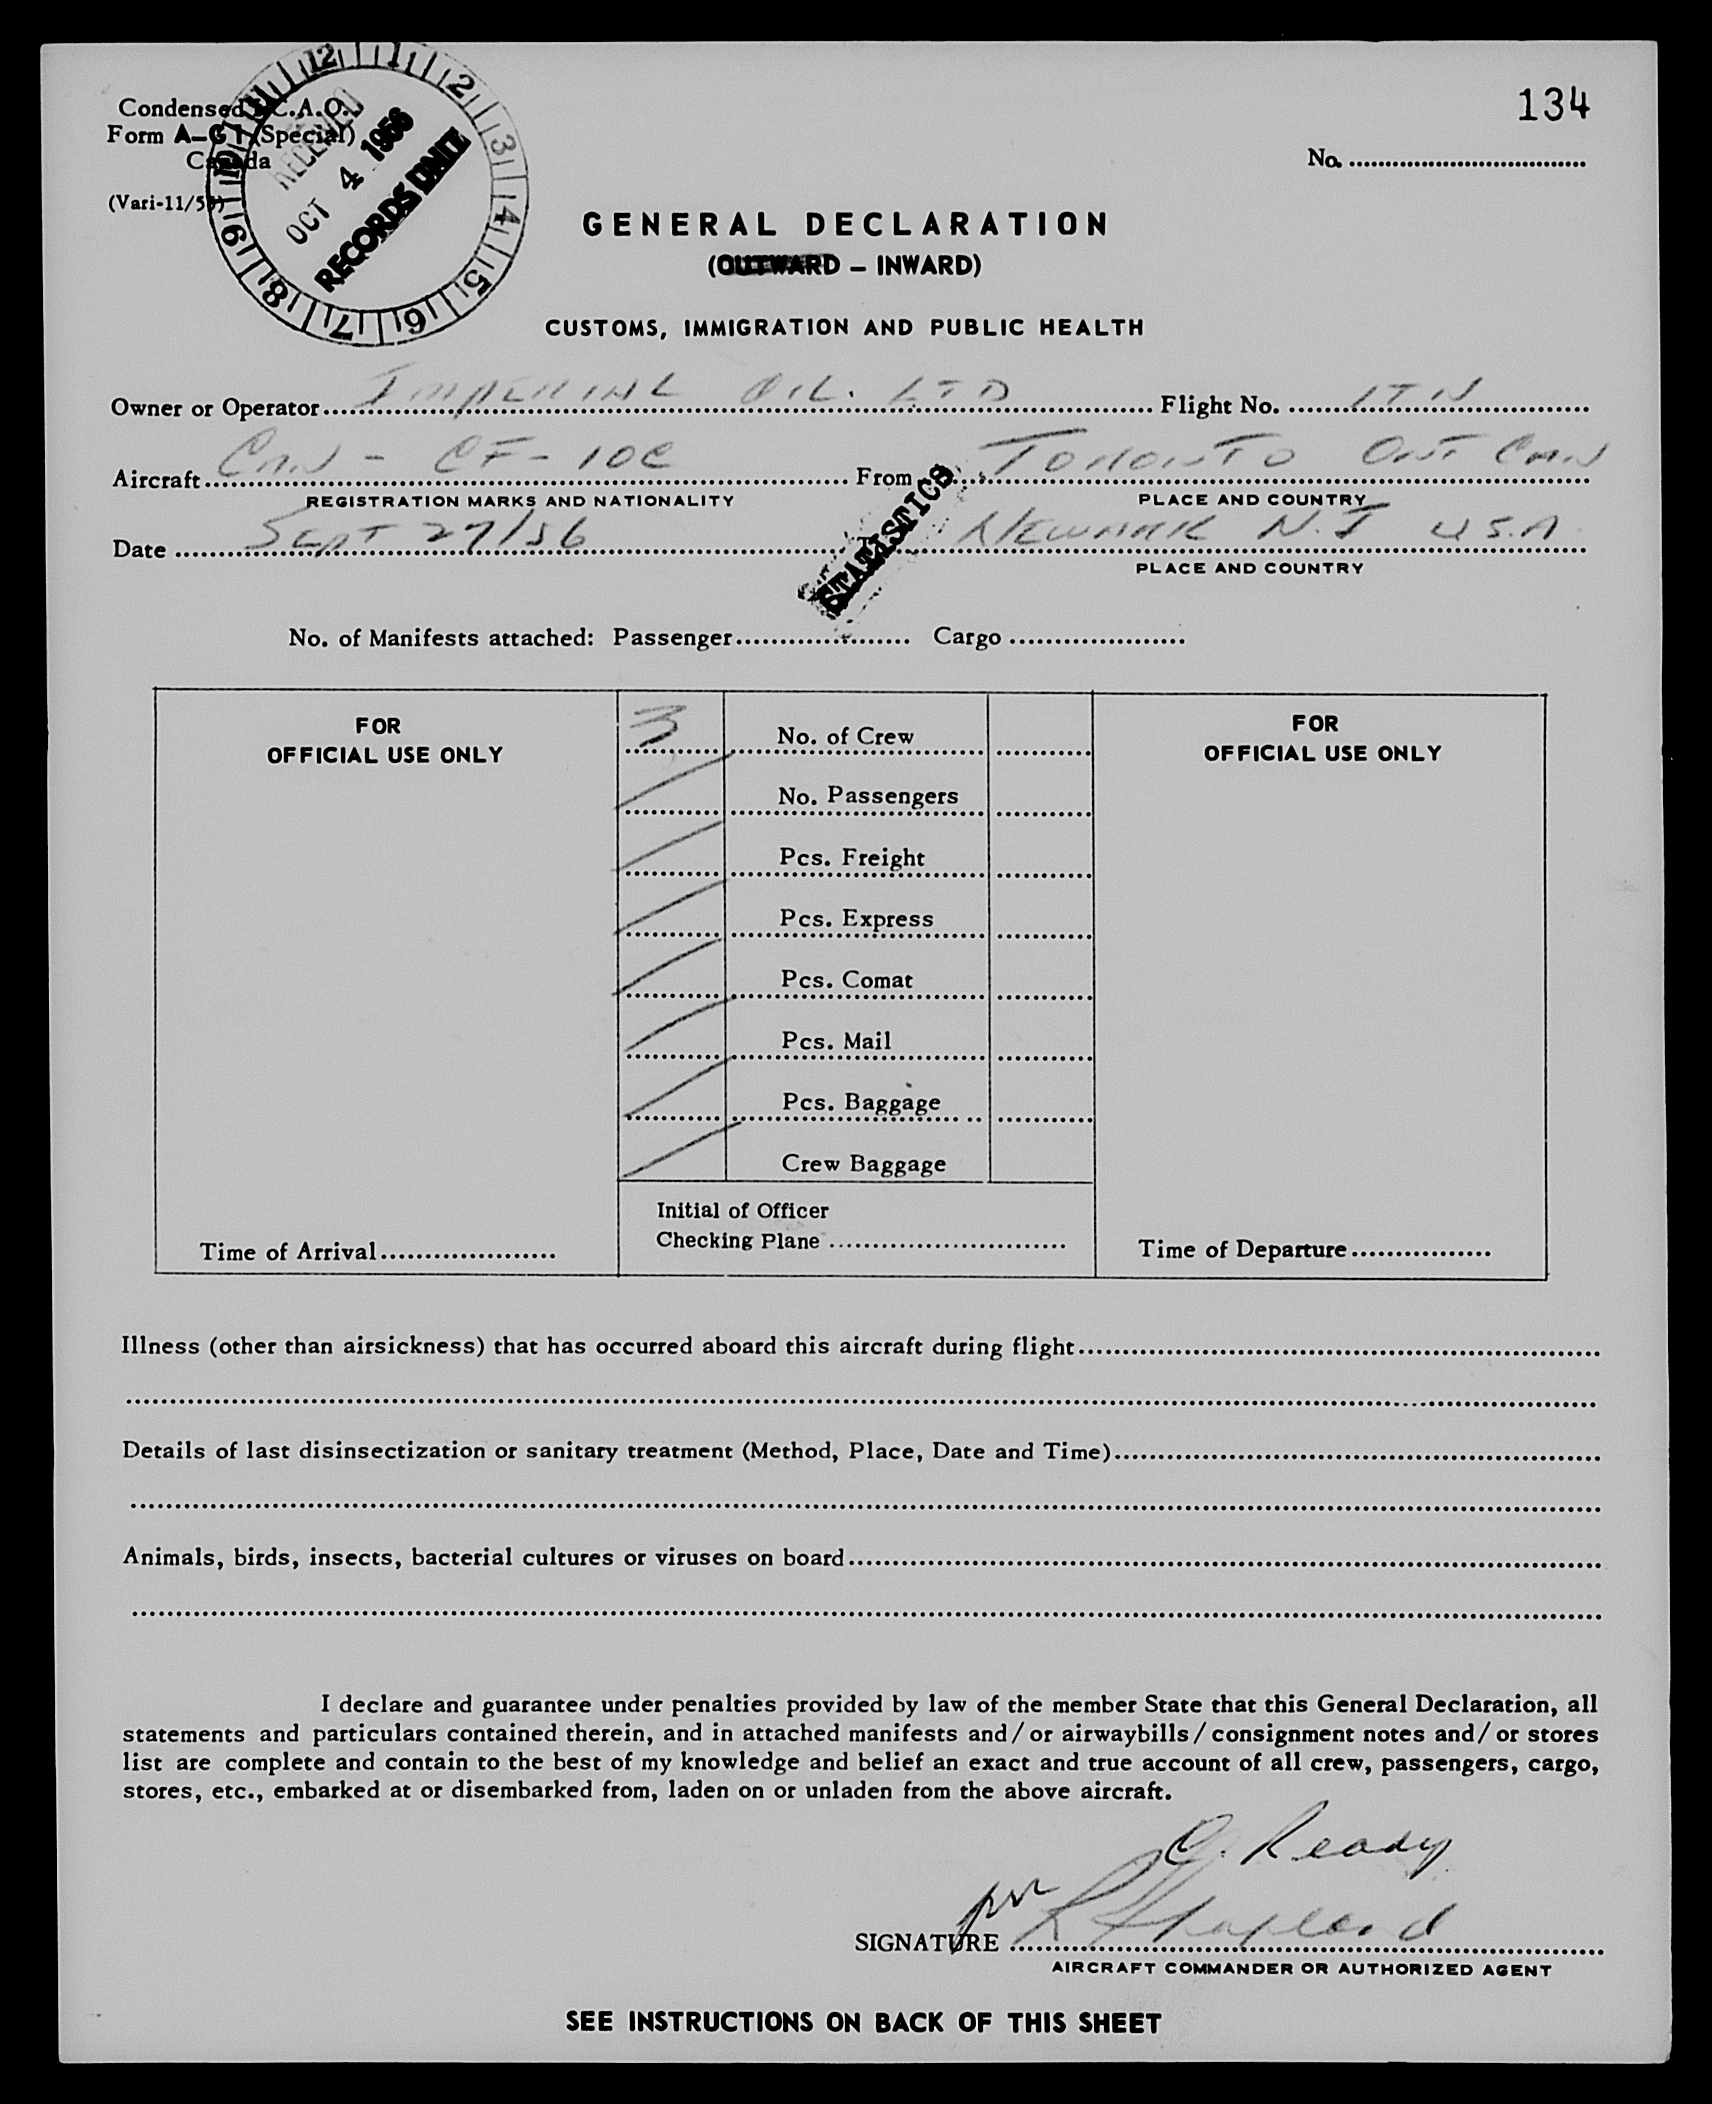 134
Condensed I.C.A.O.
Form A-G1 (Special)
Canada
(Vari-11/5
No. ................................
12 1 2 3 4 5 6 7 8 9 10 11
RECEIVED
OCT 4 1956
RECORDS UNIT
GENERAL DECLARATION
(OUTWARD – INWARD)
CUSTOMS, IMMIGRATION AND PUBLIC HEALTH
Owner or Operator IMPERIAL OIL. LTD Flight No. ITN
Aircraft CAN - CF-IOC From TORONTO ONT CAN
REGISTRATION MARKS AND NATIONALITY PLACE AND COUNTRY
STATISTICS
Date SEPT 27/56 NEWARK N.J USA
PLACE AND COUNTRY
No. of Manifests attached: Passenger.................... Cargo ....................
FOR
OFFICIAL USE ONLY
3 No. of Crew
No. Passengers
Pcs. Freight
Pcs. Express
Pcs. Comat
Pcs. Mail
Pcs. Baggage
Crew Baggage
FOR
OFFICIAL USE ONLY
Initial of Officer
Checking Plane ...........................
Time of Arrival....................
Time of Departure................
Illness (other than airsickness) that has occurred aboard this aircraft during flight
Details of last disinsectization or sanitary treatment (Method, Place, Date and Time)
Animals, birds, insects, bacterial cultures or viruses on board
I declare and guarantee under penalties provided by law of the member State that this General Declaration, all
statements and particulars contained therein, and in attached manifests and/or airwaybills/consignment notes and/or stores
list are complete and contain to the best of my knowledge and belief an exact and true account of all crew, passengers, cargo,
stores, etc., embarked at or disembarked from, laden on or unladen from the above aircraft.
Ready
SIGNATURE per
AIRCRAFT COMMANDER OR AUTHORIZED AGENT
SEE INSTRUCTIONS ON BACK OF THIS SHEET